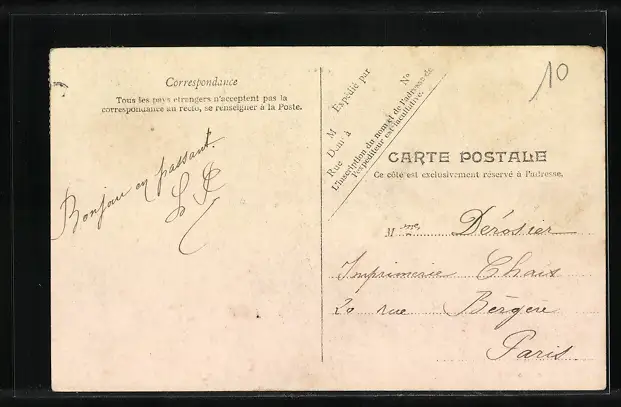 Correspondance
Tous les pays etrangers n'acceptent pas la
correspondance au recto, se renseigner à la Poste.
Bonjour en passant.
Expédié par
M
Demt à
Rue
N°
L'inscription du nom et de l'adresse de
l'expéditeur est facultative.
10
CARTE POSTALE
Ce côté est exclusivement réservé à l'adresse.
Mme Dérosier
Imprimerie Chaix
20 rue Bergère
Paris.